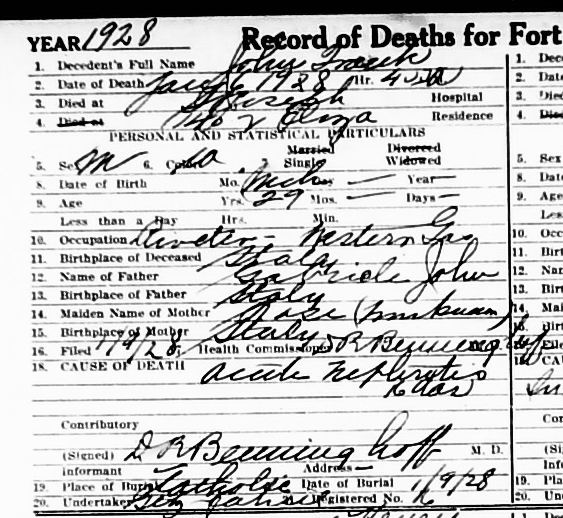 YEAR 1928 Record of Deaths for Fort
1. Decedent's Full Name John Frank
2. Date of Death Jan 6 1928 Hr. 4 A
3. Died at St Joseph Hospital
4. Died at Eliza Residence
PERSONAL AND STATISTICAL PARTICULARS
5. Sex M 6. Color 7. Married Single Divorced Widowed
8. Date of Birth Mo. Day — Year —
9. Age Yrs. 29 Mos. — Days —
Less than a Day Hrs. Min.
10. Occupation Riveter - Western Gas
11. Birthplace of Deceased Italy
12. Name of Father Gabriele John
13. Birthplace of Father Italy
14. Maiden Name of Mother Rose (unknown)
15. Birthplace of Mother Italy
16. Filed 1/9/28, Health Commissioner D R Benninghoff
18. CAUSE OF DEATH acute nephritis
Contributory
(Signed) D R Benninghoff M. D.
Informant Address —
19. Place of Burial Catholic Date of Burial 1/9/28
20. Undertaker Registered No.
1. Dece
2. Date
3. Died
4. Died
5. Sex
8. Date
9. Age
Less
10. Occ
11. Birt
12. Nan
13. Birt
14. Mai
15. Birt
16. File
18. CAU
Con
(Si
Info
19. Plac
20. Und